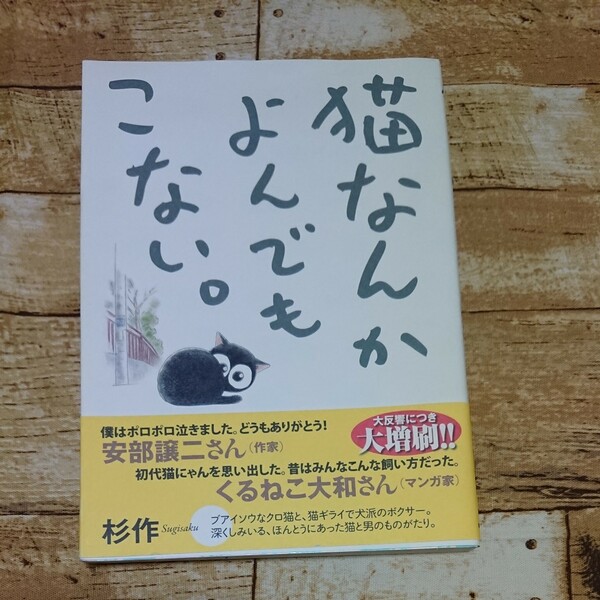 猫なんか
よんでも
こない。
僕はポロポロ泣きました。どうもありがとう!
安部譲二さん(作家)
大反響につき
大増刷!!
初代猫にゃんを思い出した。昔はみんなこんな飼い方だった。
くるねこ大和さん(マンガ家)
杉作 Sugisaku
ブアイソウなクロ猫と、猫ギライで犬派のボクサー。
深くしみいる、ほんとうにあった猫と男のものがたり。